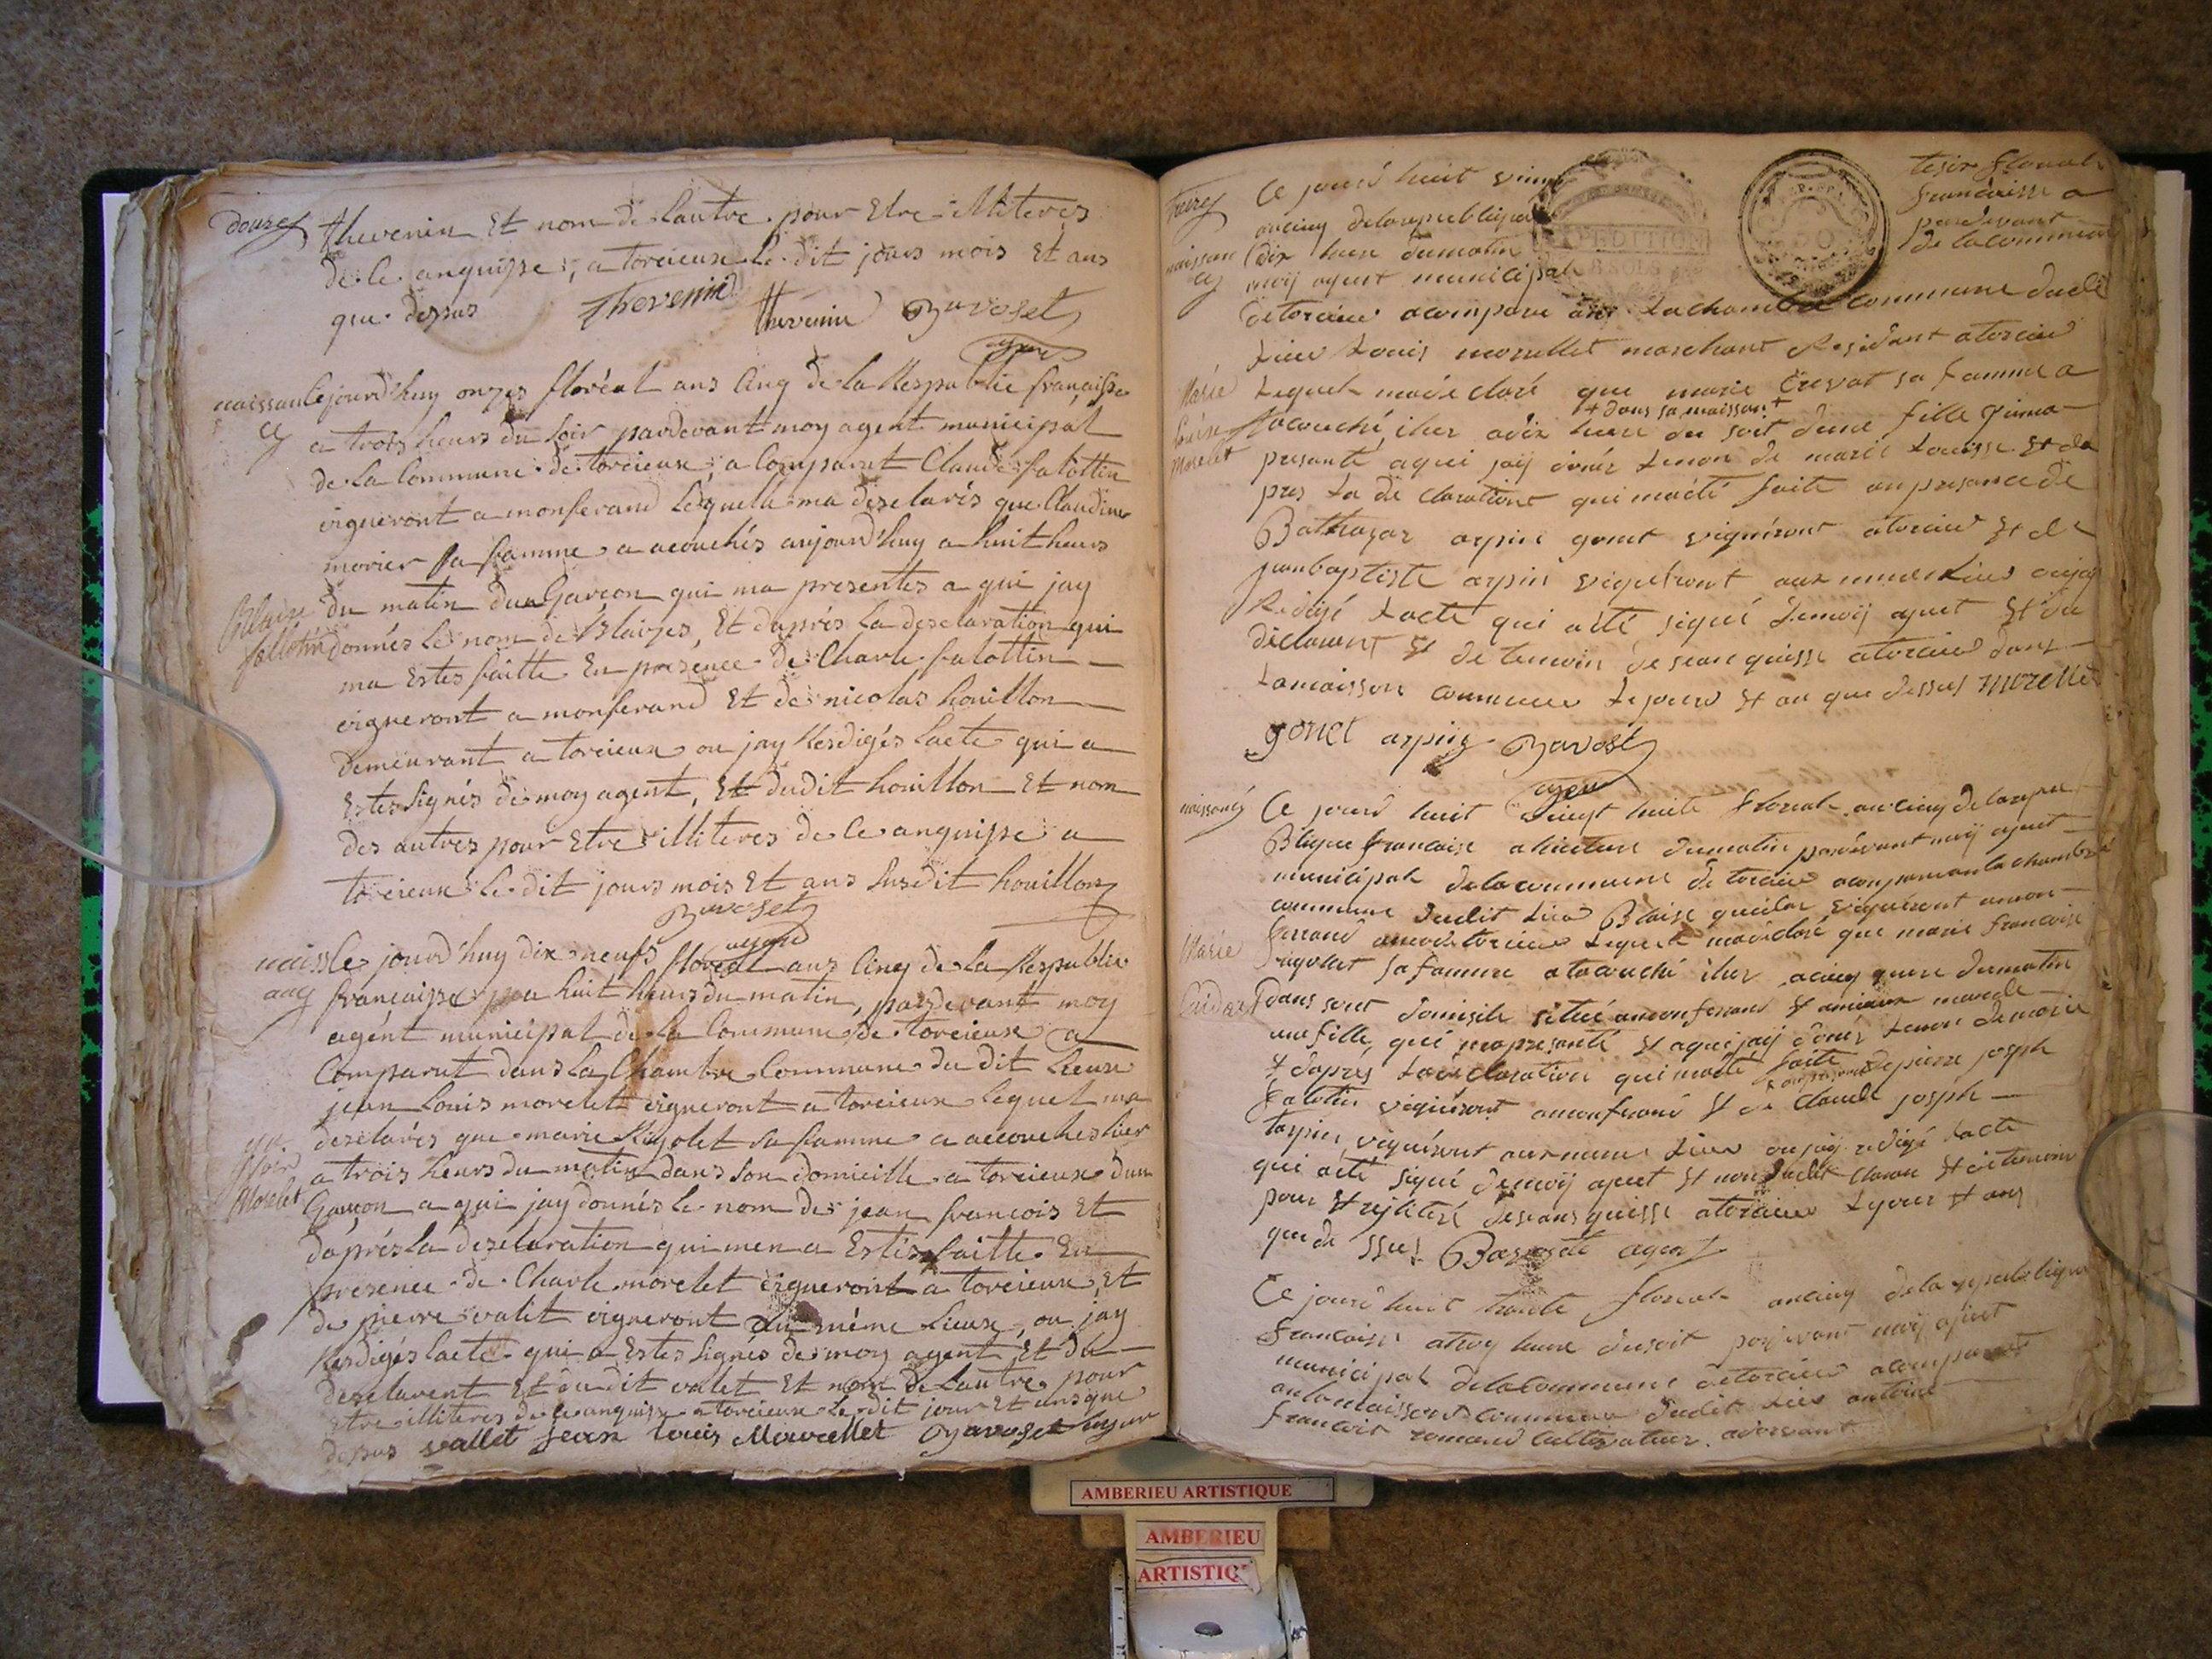 douzes
thevenin Et nom de lautre pour Etre illiteres
de ce anquisse, a torcieux le dit jours mois Et ans
que dessus Thevenin thevenin Bavoset
agent
naissan
ce
Cejourd'huy onzes floréal ans Cinq de la Respublic françaisse
a trois heurs du soir pardevant moy agent municipal
de la Commune de torcieux, a Comparut Claude falottin
vigneront a monferand lesquelle ma desclarés que Claudine
morier sa famme a acouchés aujourd'huy a huit heurs
Blaise
fallotin
du matin dun Garcon qui ma presentes a qui jay
donnés le nom de Blaizes, Et daprés la desclaration qui
ma Estes faitte En presence de Charle falottin
vigneront a monferand Et de nicolas houillon
demeurant a torcieux ou jay Resdigés lacte qui a
Estes signés de moy agent, Et dudit houillon Et nom
des autres pour Etre illiteres de ce anquisse a
torcieux le dit jours mois Et ans susdit houillon
Bavoset
agent
naiss
ance
Ce jourd'huy dix neufs floréal ans Cinq de la Respublic
francaisse a huit heurs du matin, pardevant moy
agent municipal de la Commune de torcieux a
Comparut dans la Chambre Commune du dit Lieux
jean Louis morelet vigneront a torcieux lequel ma
desclarés que marie Rigolet sa famme a accouches hier
a trois heurs du matin dans son domicille a torcieux dun
Morelet
Garçon a qui jay donnés le nom de jean francois Et
daprés la desclaration qui men a Estés faitte En
presence de Charle morelet vigneront a torcieux Et
de pierre valet vigneront du même Lieux, ou jay
Resdigés lacte qui a Estes signés de moy agent Et du
desclarent Et du dit valet Et nom de lautre pour
Etre illiteres de ce anquisse a torcieux le dit jour Et ans que
dessus vallet jean louis Mourellet Bavoset agent
treizes
naissan
ce
Ce jourd huit vint
ancinq delarepublique
dix heure dumatin
moij agent municipal
tesix floreal
francaisse a
pardevant
de lacommune
detorcieu acomparu dans lachambre commune dudit
Lieu Louis morellet marchant Residant atorcieu
Marie
Louise
Morelet
Lequel madéclaré que marie Crevat sa famme a
+ dans sa maisson +
acouché ihér adix heure du soit dune fille quima
presanté aqui jaij donéz Lenon de marie Louisse Et da
pres La dé claration qui maété faite anpresance de
Baltazar arpin gonet vigniront atorcieu Et de
jeanbaptiste arpin vigniront aux meme Lieu oujaij
Rédigé Lacte qui aété signé demoij agent Et du
déclarent Et de temoin de sean quisse atorcieu dans
Lamaisson commune Lejour Et an que dessus morellet
gonet arpin Bavoset
agent
naissance
Ce jourd huit vingt huite floreal ancinq delarepu
Blique francaise ahuiteure dumatin pardevant moij agent
municipal delacommune de torcieu acomparu anla chambre
commune dudit Lieu Blaise guidar vigniront amon
Marie
Guidar
ferrand de torcieu Lequele madeclaré que marie francoise
rigollet sa famme atacouché iher acinq heure dumatin
dans sont domisile situé amonferrand
une fille, qui mapresanté Et aqui jaij donéz Lenon demarie
Et dapres Ladéclaration qui maété faite anpresance depierre joseph
falotin vigniront amonferand Et de Claude joseph
tarpin vigniront aux meme Lieu oujaij redigé Lacte
qui aété signé demoij agent Et non dudit
pour Et de sean quisse atorcieu Lejour Et ans
que de ssus Bavoset agent
Ce jourd huit trante floreal ancinq dela republique
francaise atroij heure dusoit pardevant moij agent
municipal delacommune detorcieu acomparut
anlamaisson commune dudit Lieu antoine
francois romand Cultivateur
EXPEDITION
AMBERIEU ARTISTIQUE
AMBERIEU
ARTISTIQ